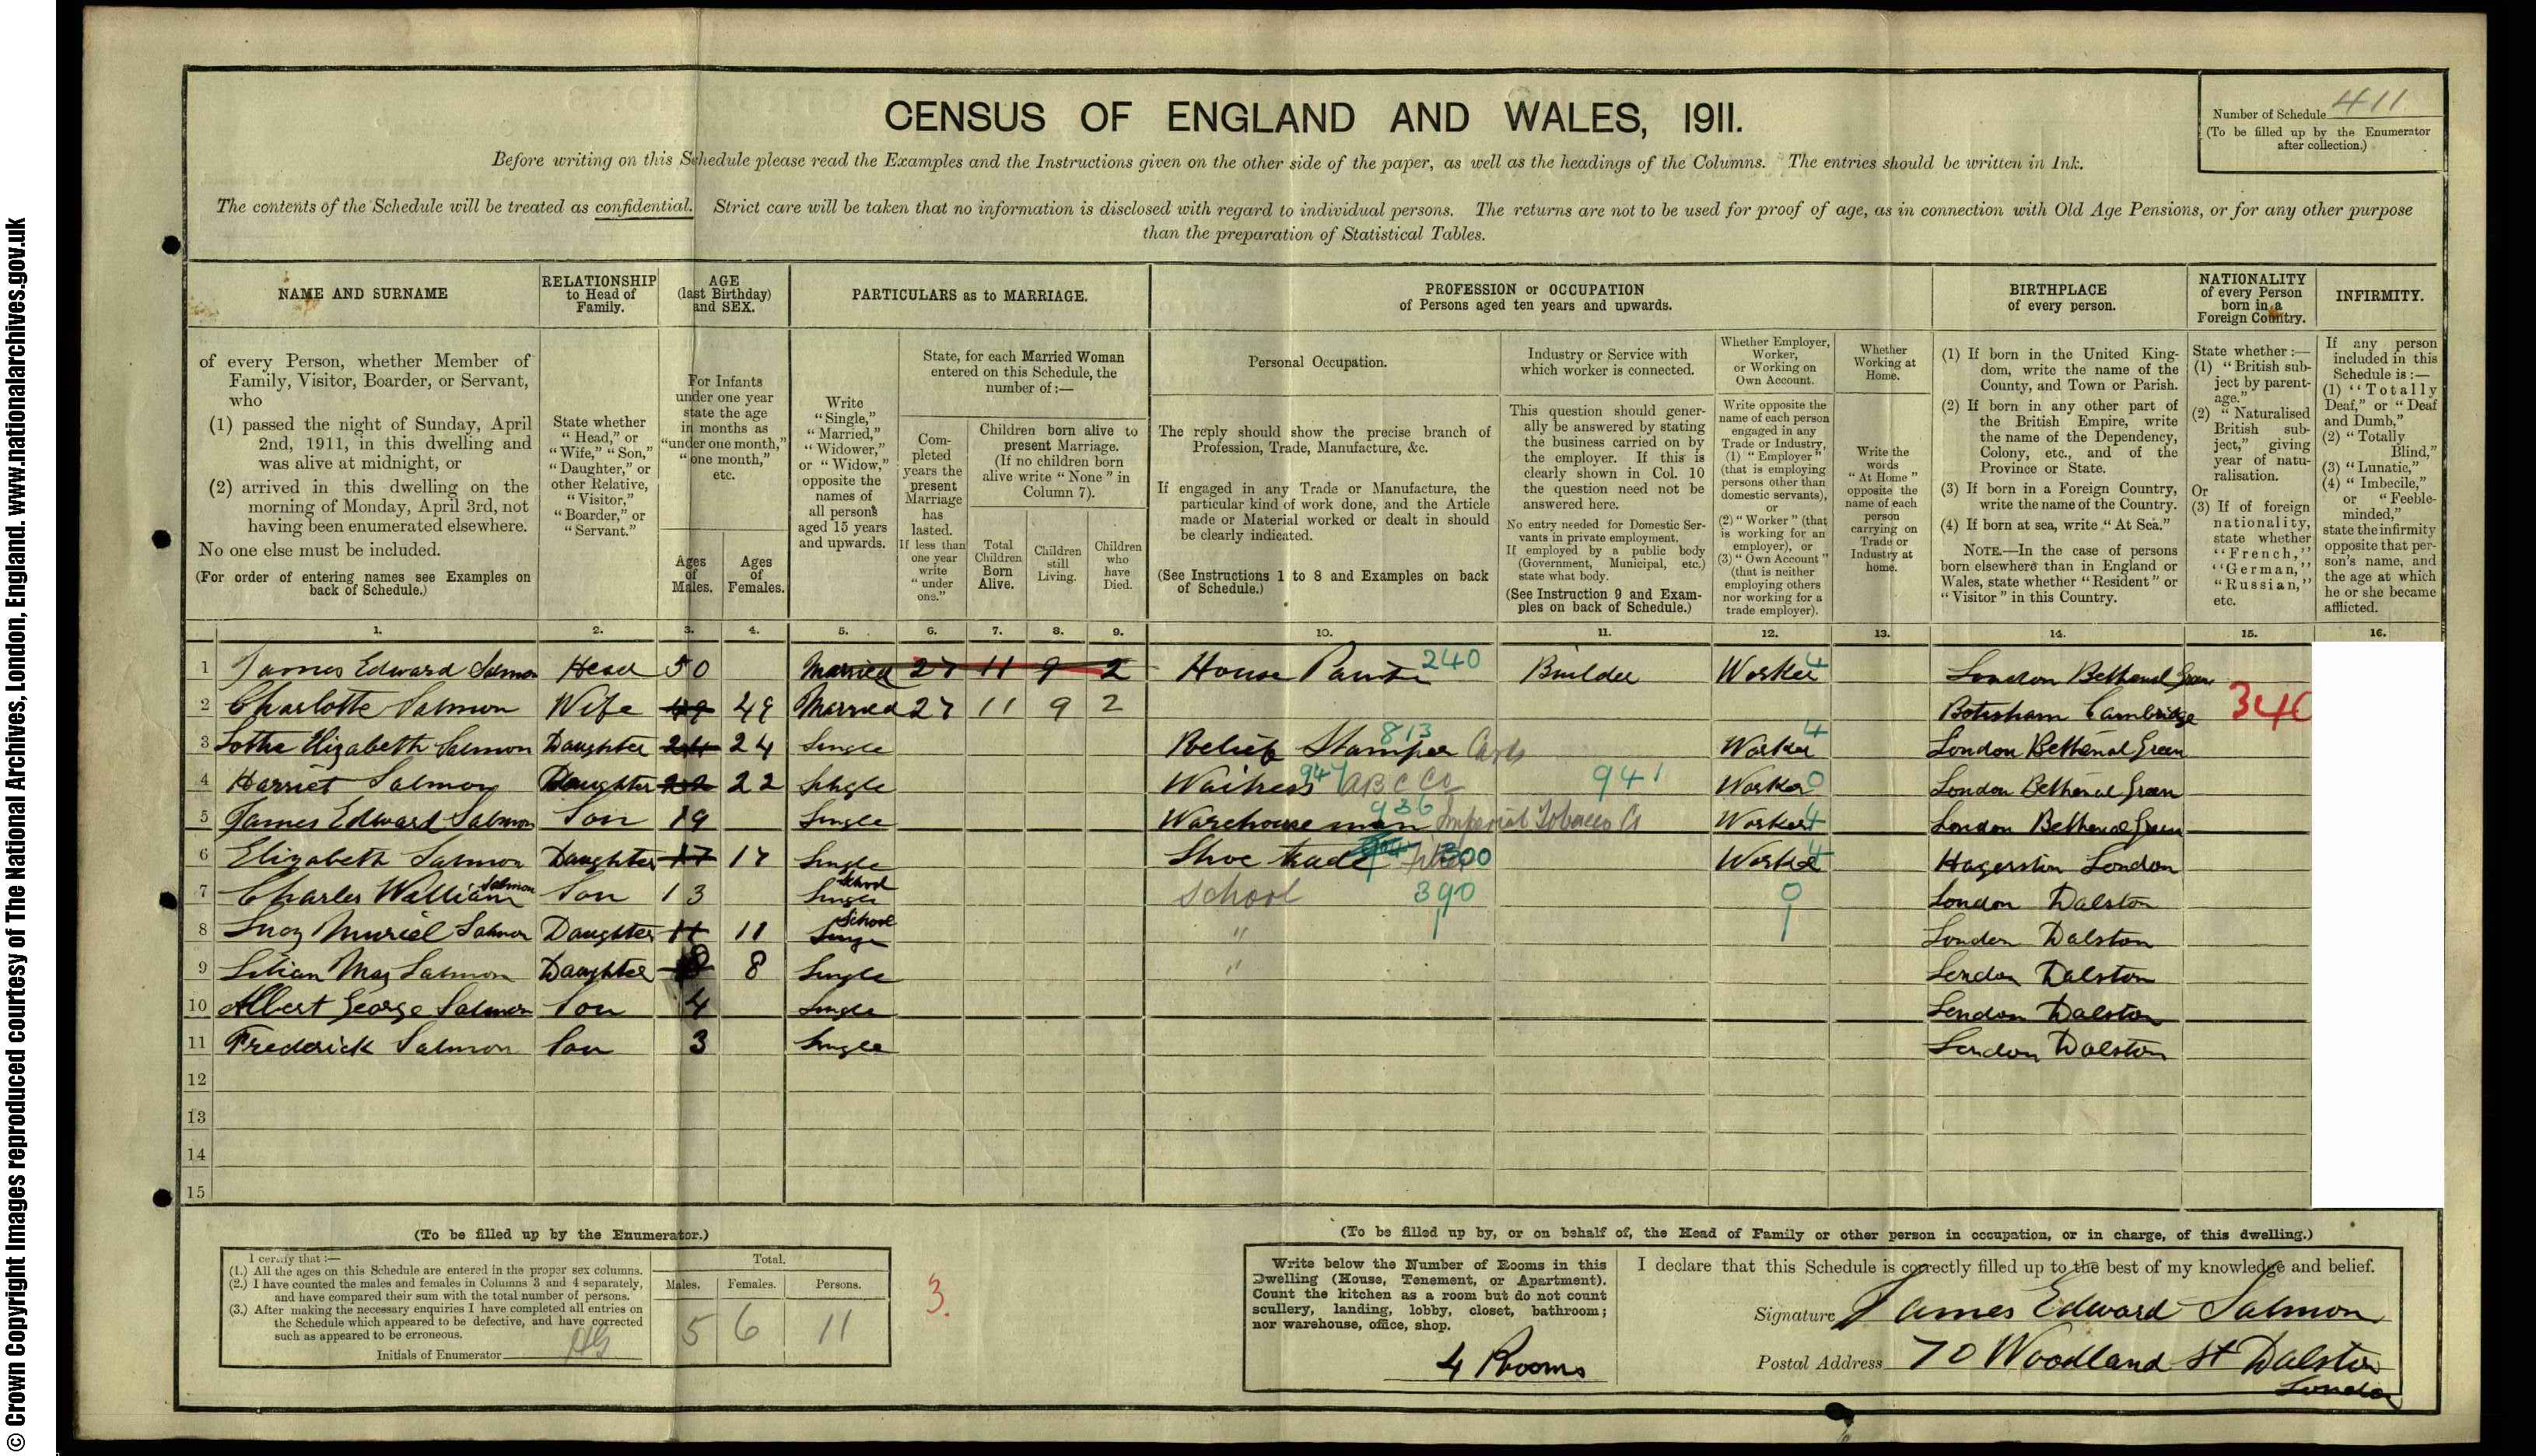 © Crown Copyright Images reproduced courtesy of The National Archives, London, England. www.nationalarchives.gov.uk
CENSUS OF ENGLAND AND WALES, 1911.
Number of Schedule 411
(To be filled up by the Enumerator after collection.)
Before writing on this Schedule please read the Examples and the Instructions given on the other side of the paper, as well as the headings of the Columns. The entries should be written in Ink.
The contents of the Schedule will be treated as confidential. Strict care will be taken that no information is disclosed with regard to individual persons. The returns are not to be used for proof of age, as in connection with Old Age Pensions, or for any other purpose
than the preparation of Statistical Tables.
NAME AND SURNAME
of every Person, whether Member of
Family, Visitor, Boarder, or Servant,
who
(1) passed the night of Sunday, April
2nd, 1911, in this dwelling and
was alive at midnight, or
(2) arrived in this dwelling on the
morning of Monday, April 3rd, not
having been enumerated elsewhere.
No one else must be included.
(For order of entering names see Examples on
back of Schedule.)
RELATIONSHIP
to Head of
Family.
State whether
"Head," or
"Wife," "Son,"
"Daughter," or
other Relative,
"Visitor,"
"Boarder," or
"Servant."
AGE
(last Birthday)
and SEX.
For Infants
under one year
state the age
in months as
"under one month,"
"one month,"
etc.
Ages
of
Males.
Ages
of
Females.
PARTICULARS as to MARRIAGE.
Write
"Single,"
"Married,"
"Widower,"
or "Widow,"
opposite the
names of
all persons
aged 15 years
and upwards.
State, for each Married Woman
entered on this Schedule, the
number of:—
Com-
pleted
years the
present
Marriage
has
lasted.
If less than
one year
write
"under
one."
Children born alive to
present Marriage.
(If no children born
alive write "None" in
Column 7).
Total
Children
Born
Alive.
Children
still
Living.
Children
who
have
Died.
PROFESSION or OCCUPATION
of Persons aged ten years and upwards.
Personal Occupation.
The reply should show the precise branch of
Profession, Trade, Manufacture, &c.
If engaged in any Trade or Manufacture, the
particular kind of work done, and the Article
made or Material worked or dealt in should
be clearly indicated.
(See Instructions 1 to 8 and Examples on back
of Schedule.)
Industry or Service with
which worker is connected.
This question should gener-
ally be answered by stating
the business carried on by
the employer. If this is
clearly shown in Col. 10
the question need not be
answered here.
No entry needed for Domestic Ser-
vants in private employment.
If employed by a public body
(Government, Municipal, etc.)
state what body.
(See Instruction 9 and Exam-
ples on back of Schedule.)
Whether Employer,
Worker,
or Working on
Own Account.
Write opposite the
name of each person
engaged in any
Trade or Industry,
(1) "Employer"
(that is employing
persons other than
domestic servants),
or
(2) "Worker" (that
is working for an
employer), or
(3) "Own Account"
(that is neither
employing others
nor working for a
trade employer).
Whether
Working at
Home.
Write the
words
"At Home"
opposite the
name of each
person
carrying on
Trade or
Industry at
home.
BIRTHPLACE
of every person.
(1) If born in the United King-
dom, write the name of the
County, and Town or Parish.
(2) If born in any other part of
the British Empire, write
the name of the Dependency,
Colony, etc., and of the
Province or State.
(3) If born in a Foreign Country,
write the name of the Country.
(4) If born at sea, write "At Sea."
NOTE.—In the case of persons
born elsewhere than in England or
Wales, state whether "Resident" or
"Visitor" in this Country.
NATIONALITY
of every Person
born in a
Foreign Country.
State whether:—
(1) "British sub-
ject by parent-
age."
(2) "Naturalised
British sub-
ject," giving
year of natu-
ralisation.
Or
(3) If of foreign
nationality,
state whether
"French,"
"German,"
"Russian,"
etc.
INFIRMITY.
If any person
included in this
Schedule is:—
(1) "Totally
Deaf," or "Deaf
and Dumb,"
(2) "Totally
Blind,"
(3) "Lunatic,"
(4) "Imbecile,"
or "Feeble-
minded,"
state the infirmity
opposite that per-
son's name, and
the age at which
he or she became
afflicted.
1. 2. 3. 4. 5. 6. 7. 8. 9. 10. 11. 12. 13. 14. 15. 16.
1 James Edward Salmon Head 50 Married 27 11 9 2 House Painter 240 Builder Worker 4 London Bethenal Green
2 Charlotte Salmon Wife 49 49 Married 27 11 9 2 Botisham Cambridge 340
3 Elizabeth Salmon Daughter 24 24 Single Relief Stamper 813 Cards Worker 4 London Bethenal Green
4 Harriet Salmon Daughter 22 22 Single Waitress 947 ABC Co 941 Worker 0 London Bethenal Green
5 James Edward Salmon Son 19 Single Warehouse man 936 Imperial Tobacco Co Worker 4 London Bethenal Green
6 Elizabeth Salmon Daughter 17 17 Single Shoe trade 300 Worker 4 Hagerston London
7 Charles William Salmon Son 13 Single School School 390 0 London Dalston
8 Lucy Muriel Salmon Daughter 11 11 Single School " London Dalston
9 Lilian May Salmon Daughter 8 8 Single " London Dalston
10 Albert George Salmon Son 4 Single London Dalston
11 Frederick Salmon Son 3 Single London Dalston
12
13
14
15
(To be filled up by the Enumerator.)
I certify that:—
(1.) All the ages on this Schedule are entered in the proper sex columns.
(2.) I have counted the males and females in Columns 3 and 4 separately,
and have compared their sum with the total number of persons.
(3.) After making the necessary enquiries I have completed all entries on
the Schedule which appeared to be defective, and have corrected
such as appeared to be erroneous.
Initials of Enumerator
Total.
Males. Females. Persons.
5 6 11
3.
(To be filled up by, or on behalf of, the Head of Family or other person in occupation, or in charge, of this dwelling.)
Write below the Number of Rooms in this
Dwelling (House, Tenement, or Apartment).
Count the kitchen as a room but do not count
scullery, landing, lobby, closet, bathroom;
nor warehouse, office, shop.
4 Rooms
I declare that this Schedule is correctly filled up to the best of my knowledge and belief.
Signature James Edward Salmon
Postal Address 70 Woodland St Dalston
London